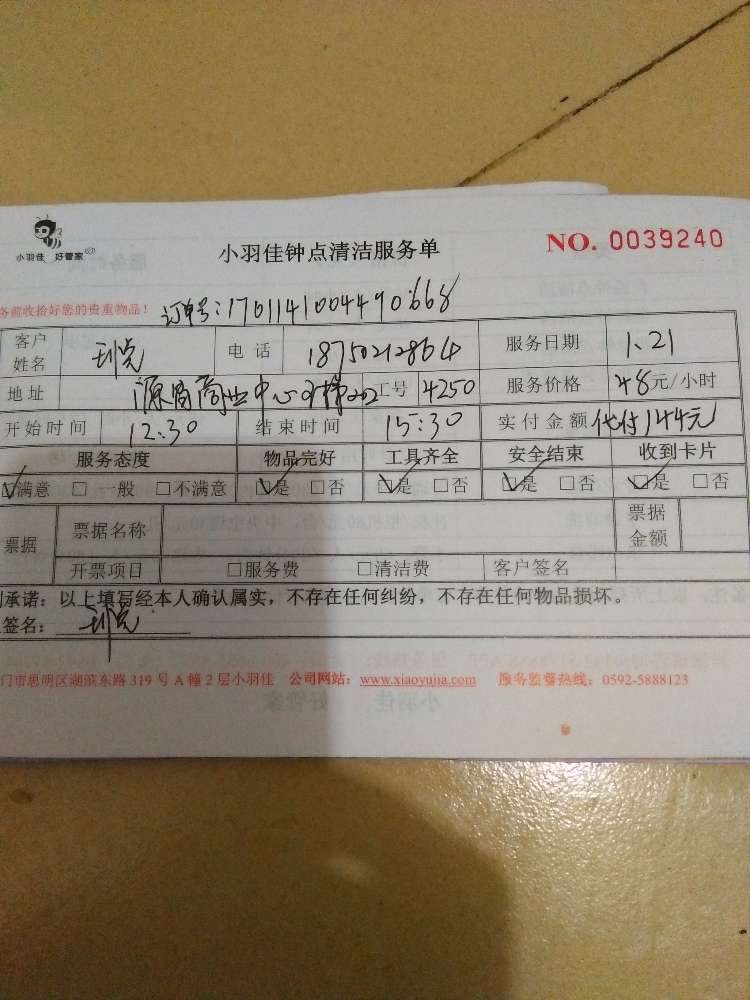 小羽佳 好管家
小羽佳钟点清洁服务单
NO. 0039240
务前收拾好您的贵重物品！
订单号：1701141004490668
客户姓名 电话 18750212864 服务日期 1.21
地址 源昌商业中心 工号 4250 服务价格 48元/小时
开始时间 12:30 结束时间 15:30 实付金额 代付144元
服务态度 物品完好 工具齐全 安全结束 收到卡片
☑满意 □一般 □不满意 ☑是 □否 ☑是 □否 ☑是 □否 ☑是 □否
票据 票据名称 票据金额
开票项目 □服务费 □清洁费 客户签名
承诺：以上填写经本人确认属实，不存在任何纠纷，不存在任何物品损坏。
签名：
门市思明区湖滨东路319号A幢2层小羽佳 公司网站：www.xiaoyujia.com 服务监督热线：0592-5888123